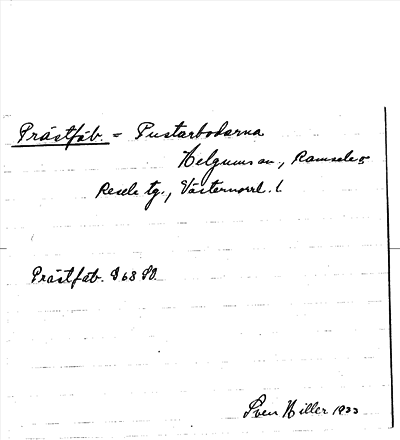 Prästfäb. = Pustarbodarna
Helgums sn, Ramsele o
Resele tg., Västernorrl. l
Prästfäb. S 68 SO.
Sven Hiller 1933